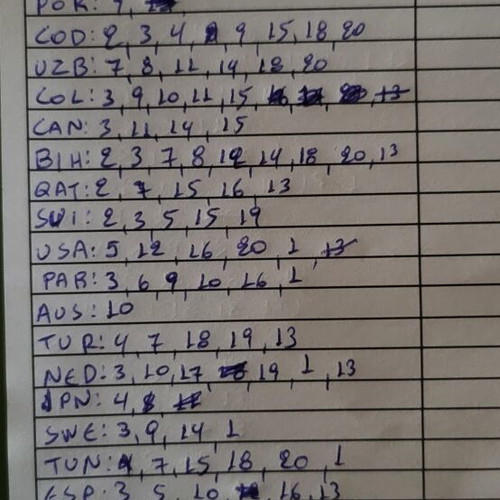 POR: 9,
COD: 2, 3, 4, 9, 15, 18, 20
UZB: 7, 8, 11, 14, 18, 20
COL: 3, 9, 10, 11, 15, 13
CAN: 3, 11, 14, 15
BIH: 2, 3, 7, 8, 12, 14, 18, 20, 13
QAT: 2, 7, 15, 16, 13
SWI: 2, 3, 5, 15, 19
USA: 5, 12, 16, 20, 1, 13
PAR: 3, 6, 9, 10, 16, 1
AUS: 10
TUR: 4, 7, 18, 19, 13
NED: 3, 10, 17, 19, 1, 13
JPN: 4,
SWE: 3, 9, 14, 1
TUN: 4, 7, 15, 18, 20, 1
ESP: 3, 5, 10, 16, 13